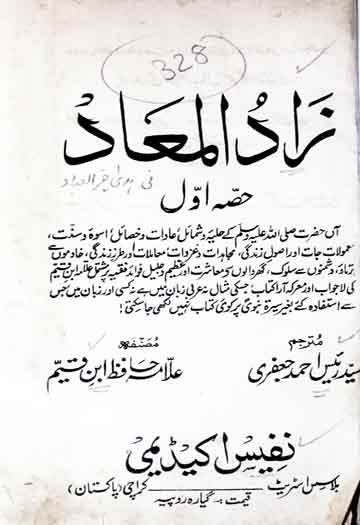 328
زادُ المعَاد
فی ہدی خیر العباد
حصّہ اوّل
آں حضرت صلی اللہ علیہ وسلم کے حلیہ و شمائل، عادات و خصائل، اسوۂ و سنت،
معمولات جات اور اصولِ زندگی، مجاہدات و غزوات، معاملات اور طرزِ زندگی، خادموں سے
برتاؤ، دشمنوں سے سلوک، گھر والوں سے معاشرت اور عظیم و جلیل فوائد فقہیہ پر مشتمل علامہ ابن قیم
کی لاجواب اور معرکہ آرا کتاب، جسکی مثال نہ عربی زبان میں ہے نہ کسی اور زبان میں جس
سے استفادہ کئے بغیر سیرۃ نبوی پر کوئی کتاب نہیں لکھی جاسکتی!
مصنفہ
علّامہ حافظ ابن قیّم
مترجم
سید رئیس احمد جعفری
نفیس اکیڈیمی
بلاسس اسٹریٹ کراچی (پاکستان)
قیمت :۔ گیارہ روپیہ